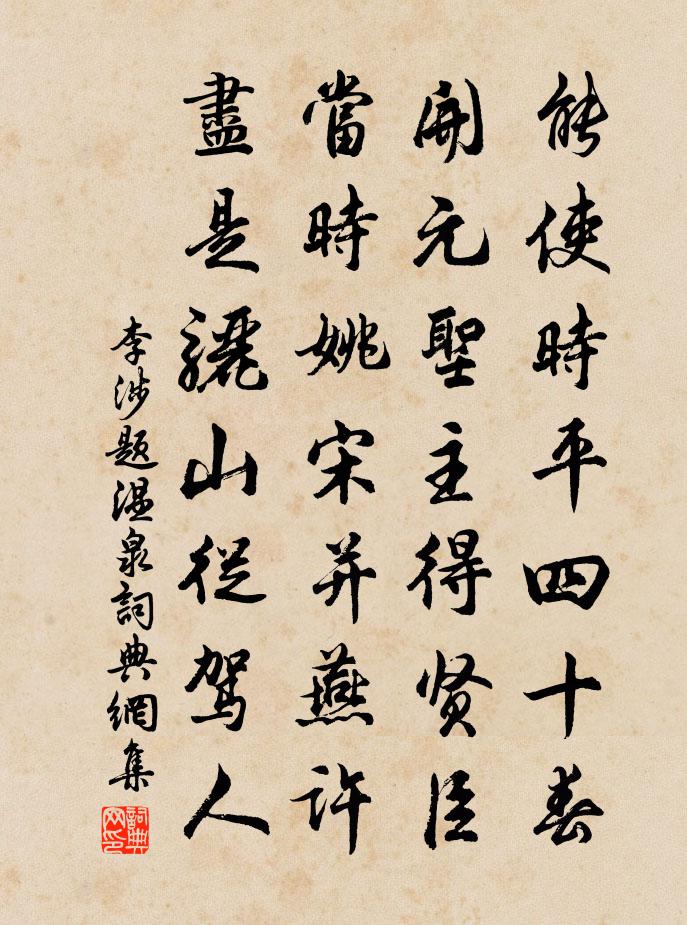 能使時平四十春
開元聖主得贤臣
當時姚宋并燕許
盡是驪山從驾人
李涉题温泉詞典網集
詞典网印